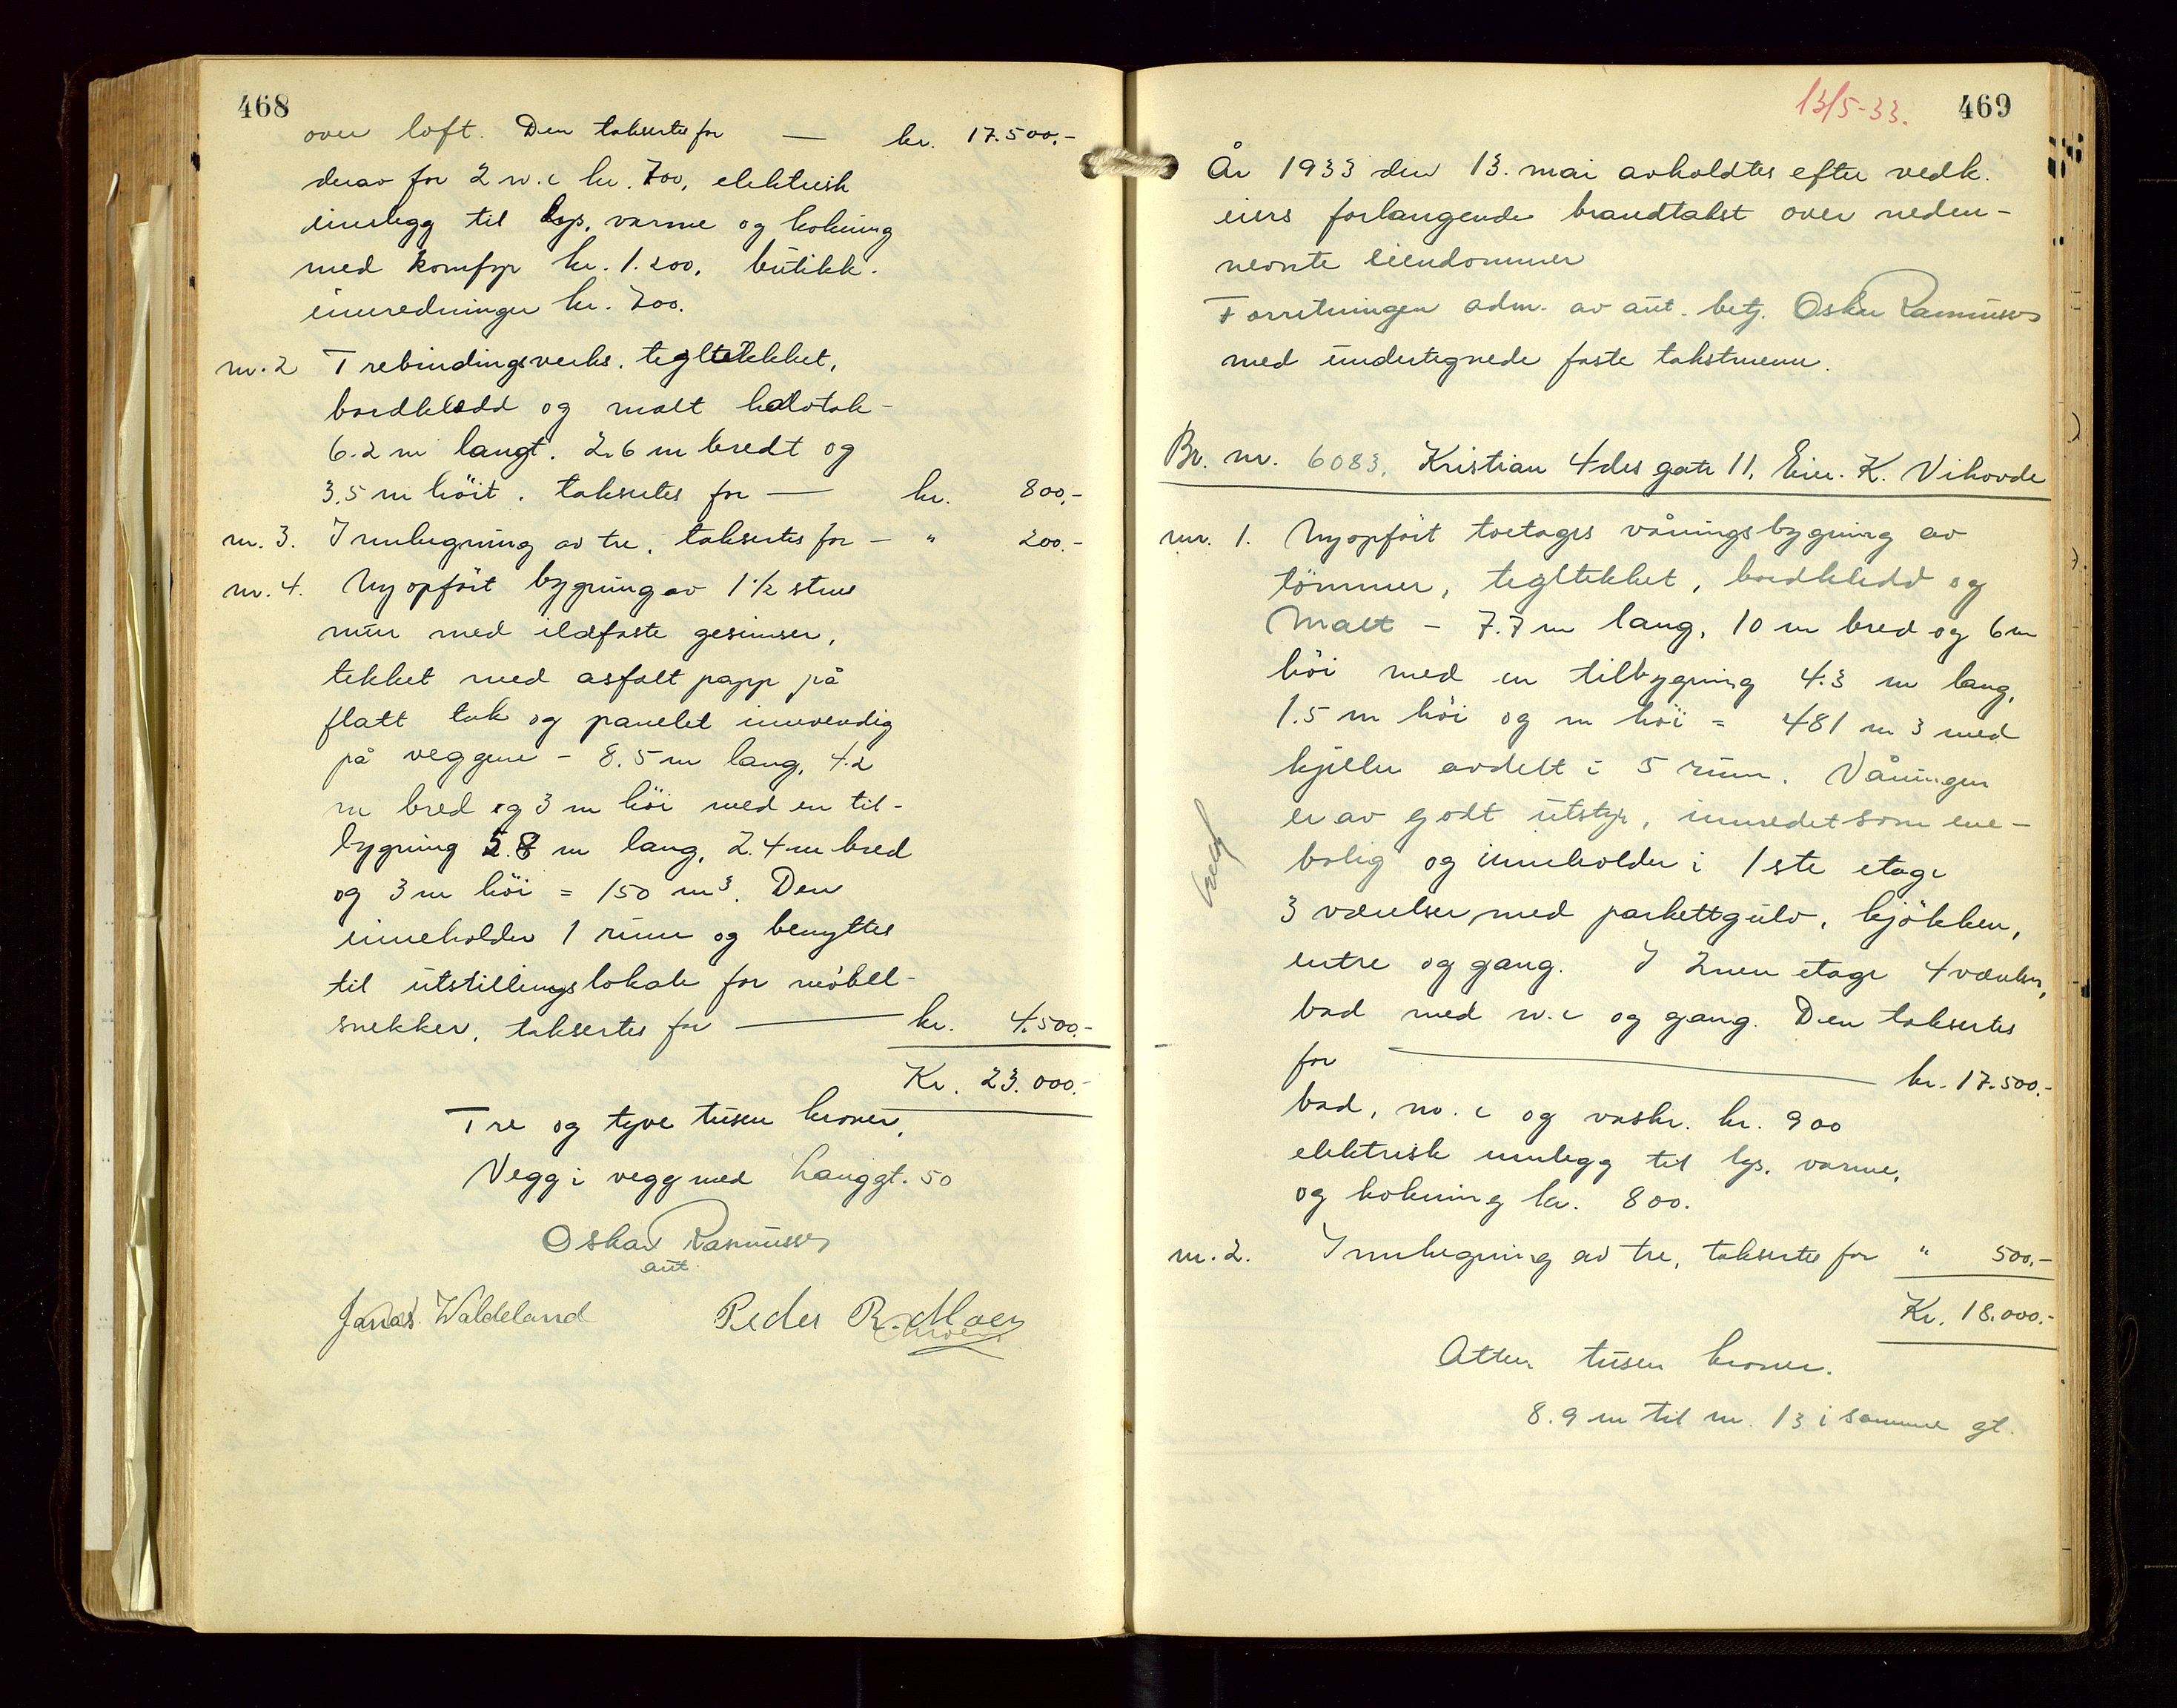 468
over loft. Den takseres for — kr. 17.500.-
derav for 2 w.c kr. 700, elektrisk
innlegg til lys, varme og kokning
med komfyr kr. 1.200, butikk-
innredninger kr. 700.
nr. 2 Trebindingsverks, tegltekket,
bordklædd og malt halvtak-
6.2 m langt. 2.6 m bredt og
3.5 m höit. takseres for — kr. 800.-
nr. 3. Innhegning av tre, takseres for — " 200.-
nr. 4. Nyopfört bygning av 1½ stens
mur med ildfaste gesimser,
tekket med asfalt papp på
flatt tak og panelet innvendig
på veggene - 8.5 m lang, 4.2
m bred og 3 m höi med en til-
bygning 5.8 m lang, 2.4 m bred
og 3 m höi = 150 m³. Den
inneholder 1 rum og benyttes
til utstillingslokale for möbel-
snekker, takseres for — kr. 4.500.-
Kr. 23.000.-
Tre og tyve tusen kroner.
Vegg i vegg med Langgt. 50
Oskar Rasmussen
aut.
Jonas Waldeland Peder R. Moen
13/5-33. 469
År 1933 den 13. mai avholdtes efter vedk.
eiers forlangende brandtakst over neden-
nevnte eiendommer
Forretningen adm. av aut. betj. Oskar Rasmussen
med undertegnede faste takstmenn.
Br. nr. 6083. Kristian 4des gate 11, Eier. K. Vikovde
nr. 1. Nyopfört toetages våningsbygning av
tömmer, tegltekket, bordkledd og
malt - 7.7 m lang, 10 m bred og 6 m
höi med en tilbygning 4.3 m lang,
1.5 m höi og m höi = 481 m 3 med
kjeller avdelt i 5 rum. Våningen
er av godt utstyr, innredet som ene-
bolig og inneholder i 1ste etage
3 værelser med parkettgulv, kjökken,
entre og gang. I 2nen etage 4 værelser,
bad med w.c og gang. Den takseres
for — kr. 17.500.-
bad, w.c og vaskr. kr. 900
elektrisk innlegg til lys, varme,
og kokning kr. 800.
nr. 2. Innhegning av tre, takseres for " 500.-
Kr. 18.000.-
Atten tusen kroner.
8.9 m til nr. 13 i samme gt.